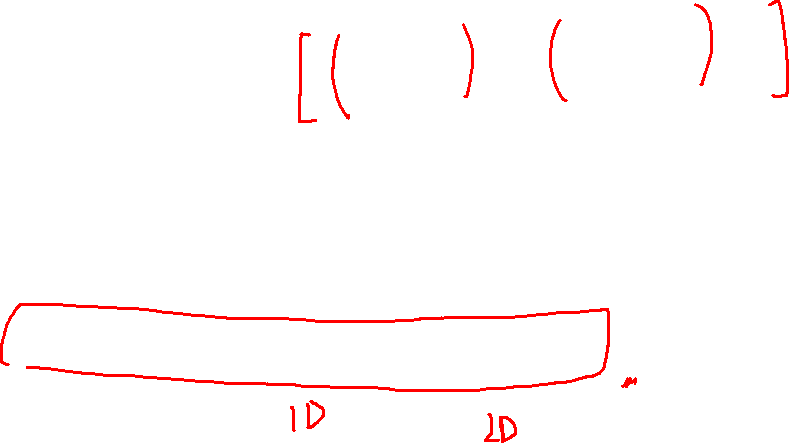 [( ) ( )]
1D 2D